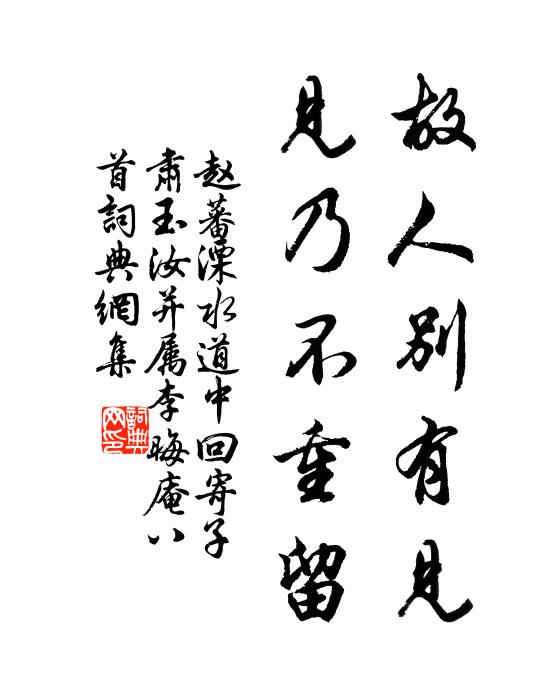 故人别有見
見乃不重留
赵蕃溧水道中回寄子
肃玉汝并属李晦庵八
首詞典網集
詞典
网印